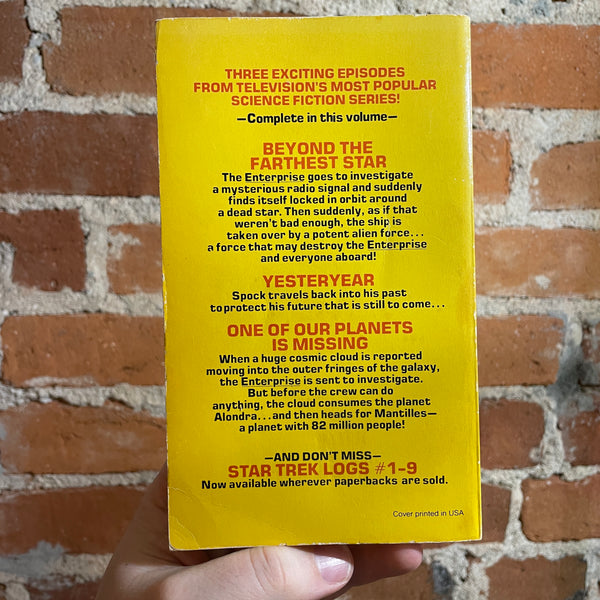 THREE EXCITING EPISODES
FROM TELEVISION'S MOST POPULAR
SCIENCE FICTION SERIES!
—Complete in this volume—
BEYOND THE
FARTHEST STAR
The Enterprise goes to investigate
a mysterious radio signal and suddenly
finds itself locked in orbit around
a dead star. Then suddenly, as if that
weren't bad enough, the ship is
taken over by a potent alien force...
a force that may destroy the Enterprise
and everyone aboard!
YESTERYEAR
Spock travels back into his past
to protect his future that is still to come...
ONE OF OUR PLANETS
IS MISSING
When a huge cosmic cloud is reported
moving into the outer fringes of the galaxy,
the Enterprise is sent to investigate.
But before the crew can do
anything, the cloud consumes the planet
Alondra...and then heads for Mantilles—
a planet with 82 million people!
—AND DON'T MISS—
STAR TREK LOGS #1-9
Now available wherever paperbacks are sold.
Cover printed in USA